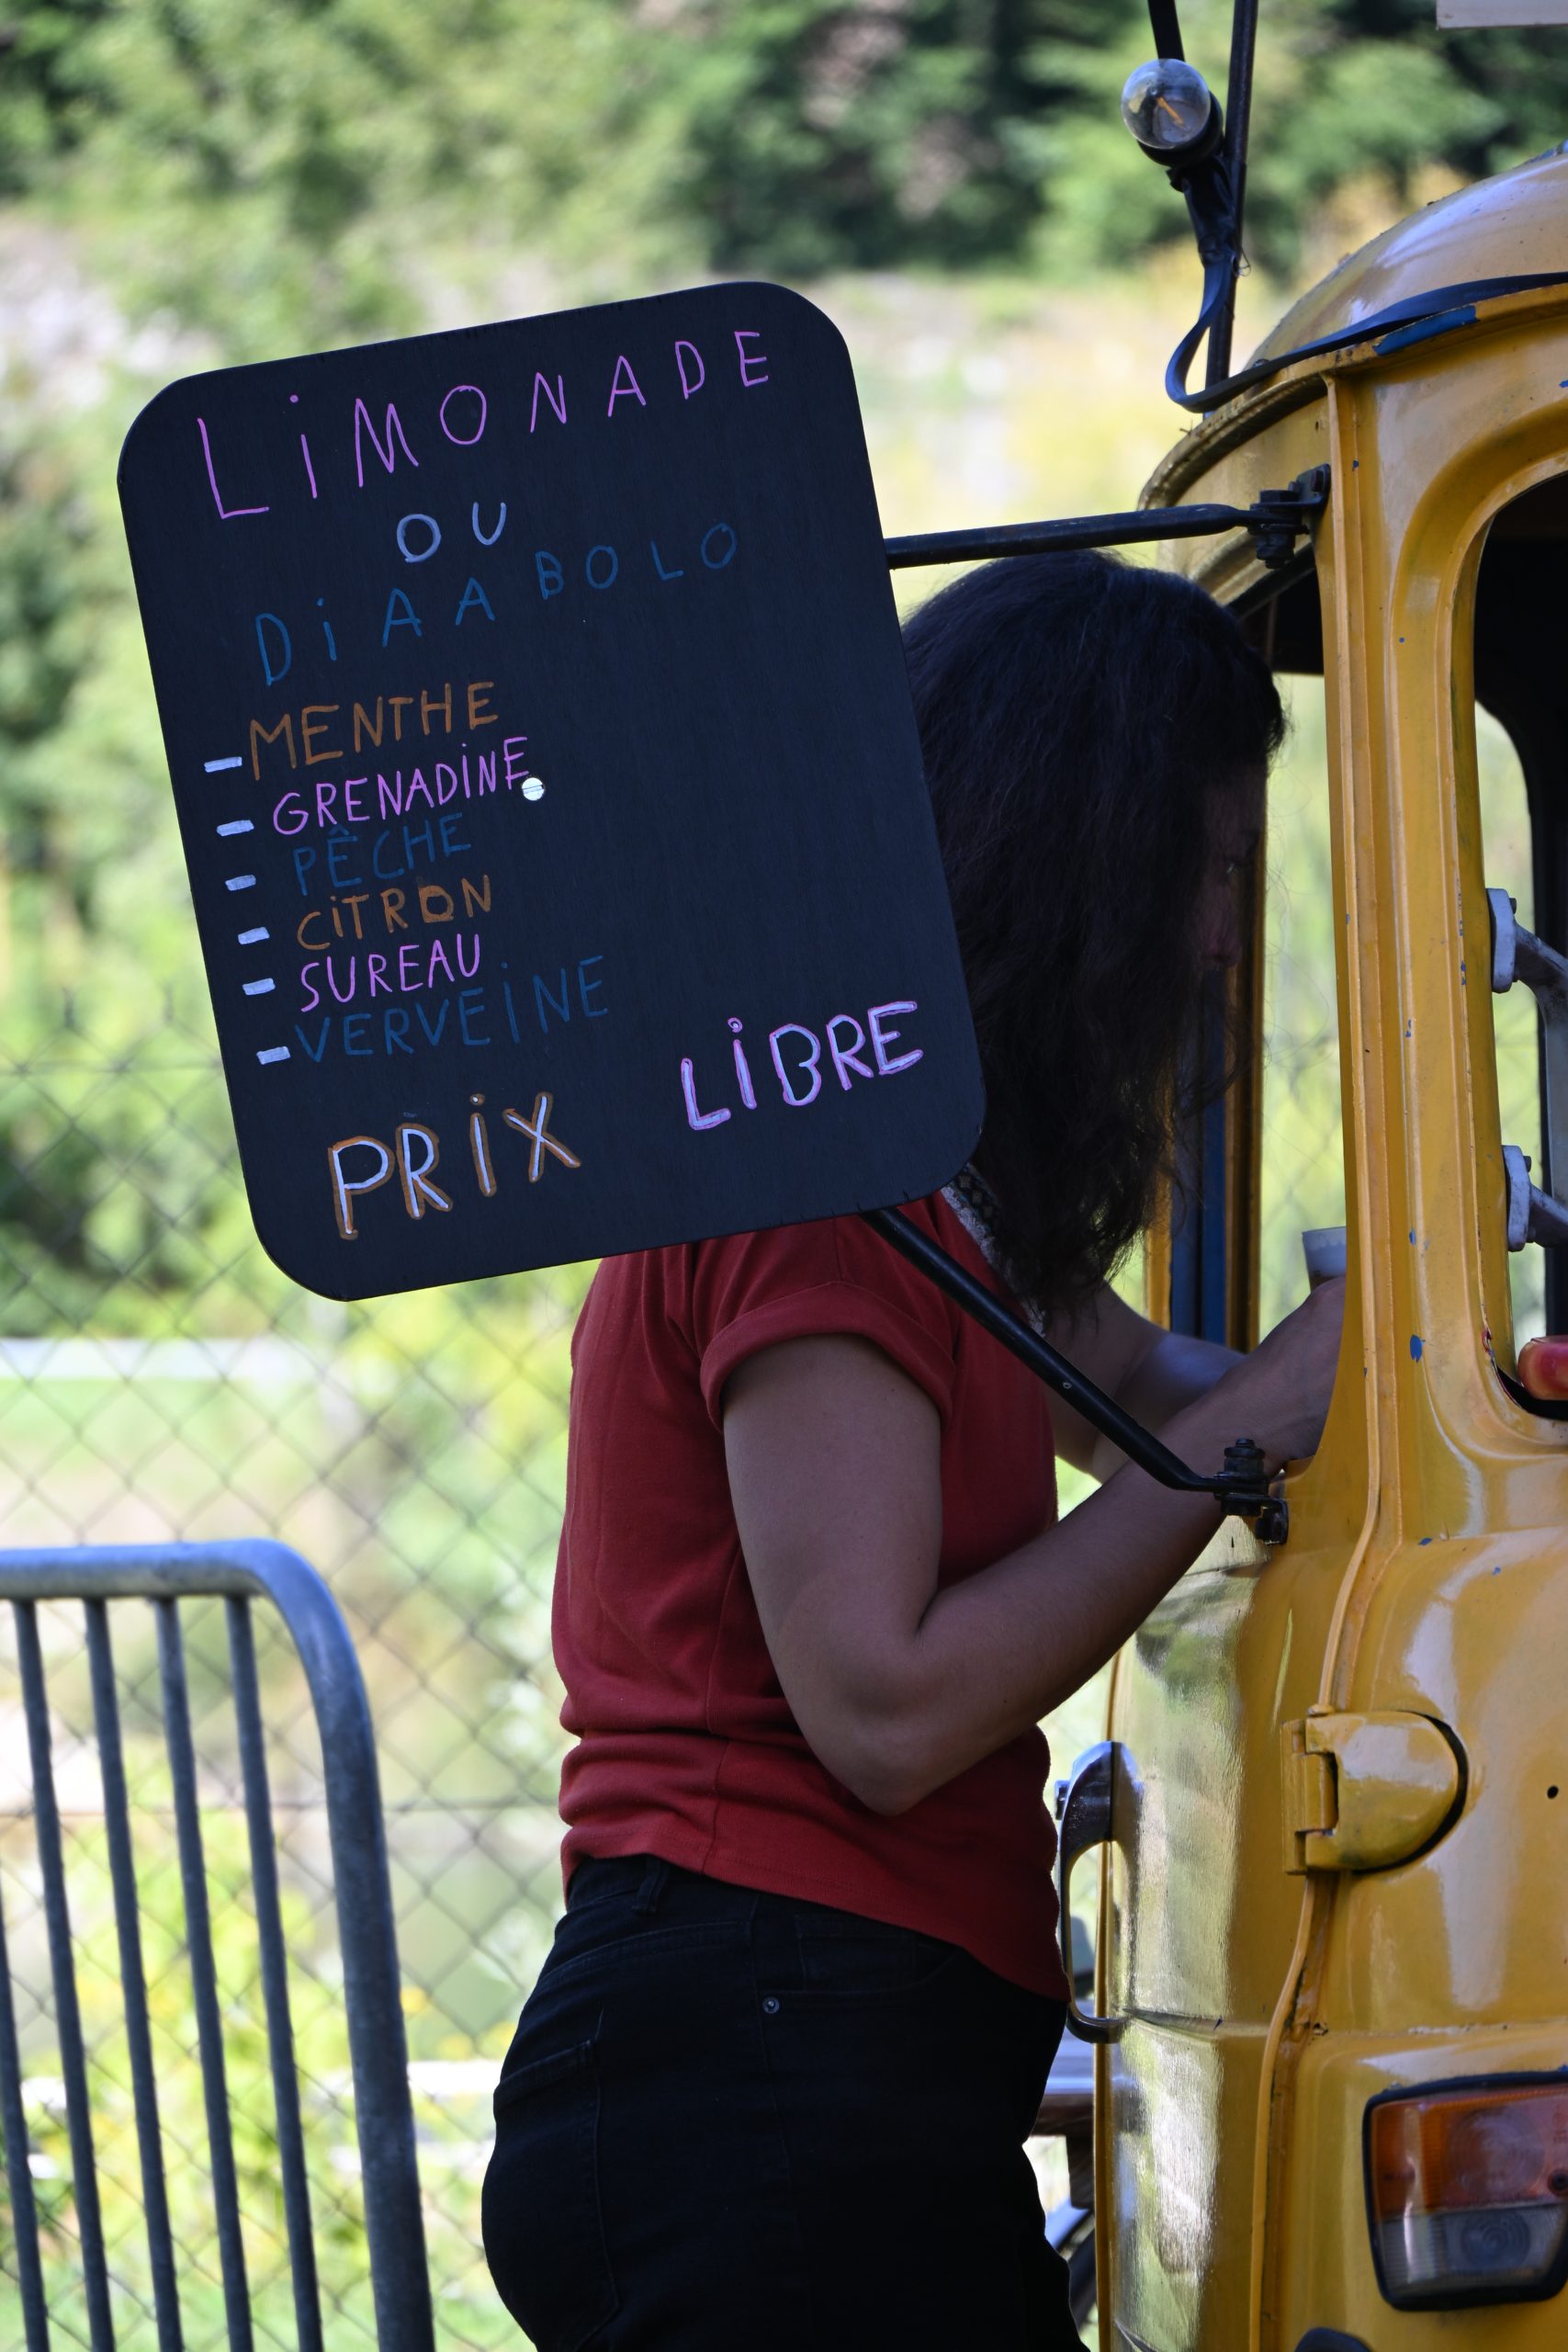 LiMONADE
OU
DiAABOLO
- MENTHE
- GRENADiNE
- PÊCHE
- CiTRON
- SUREAU
- VERVEiNE
PRiX LiBRE